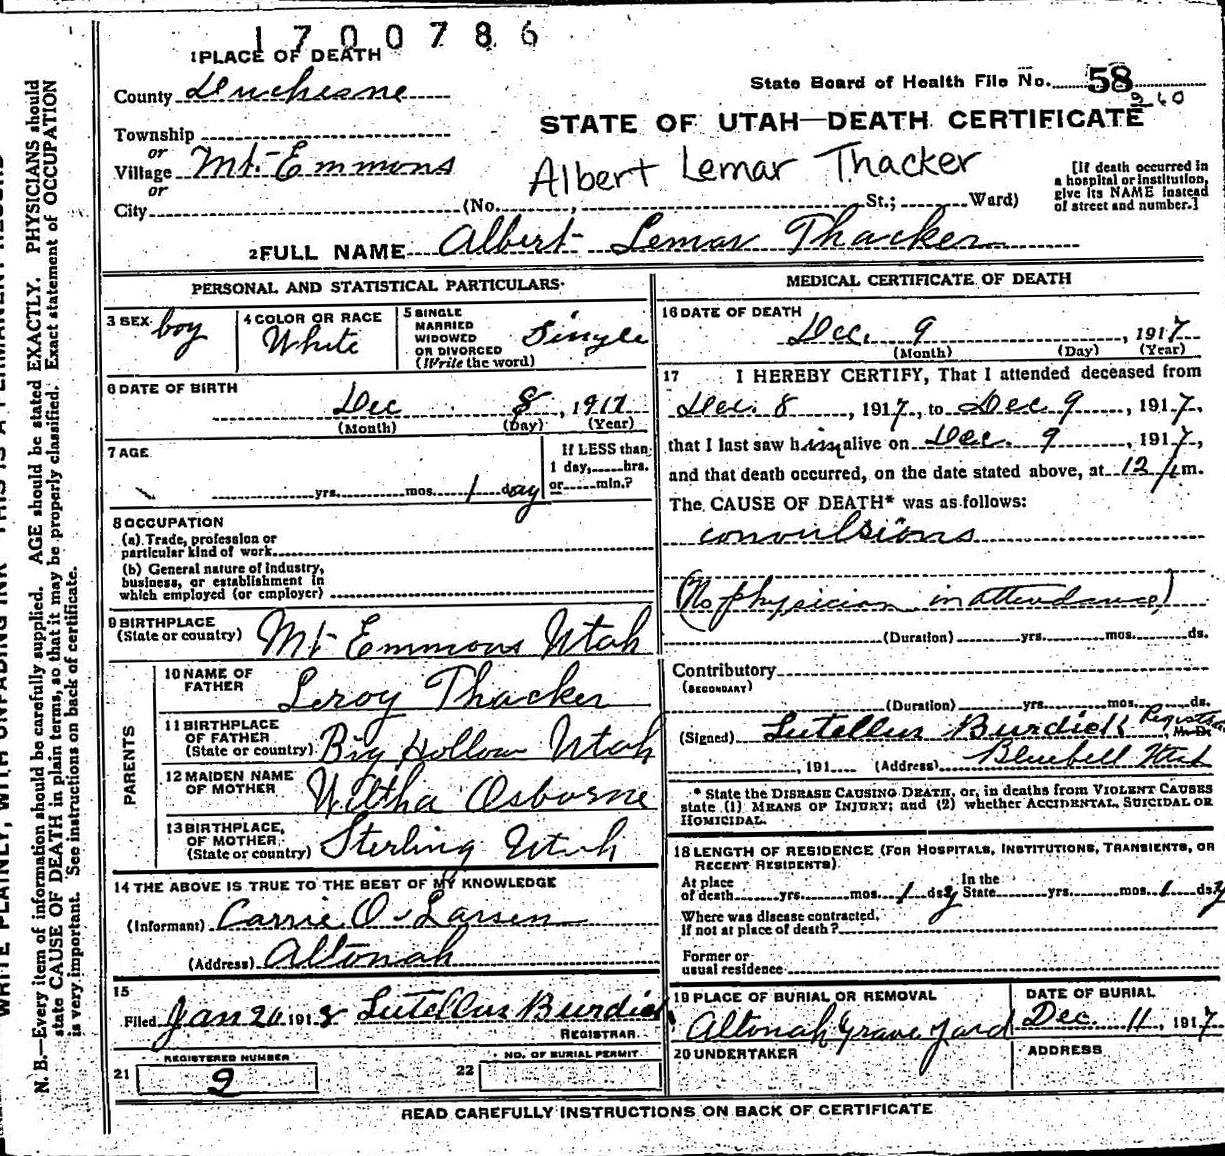 1700786
1 PLACE OF DEATH
County Duchesne
State Board of Health File No. 58
360
Township
or
STATE OF UTAH—DEATH CERTIFICATE
Village Mt. Emmons
or
Albert Lemar Thacker
[If death occurred in
a hospital or institution,
give its NAME instead
of street and number.]
City (No. , St.; Ward)
2 FULL NAME Albert Lemar Thacker
PERSONAL AND STATISTICAL PARTICULARS
3 SEX boy
4 COLOR OR RACE
White
5 SINGLE
MARRIED
WIDOWED
OR DIVORCED
(Write the word)
Single
6 DATE OF BIRTH
Dec 8, 1917
(Month) (Day) (Year)
7 AGE
yrs. mos. 1 day
If LESS than
1 day, hrs.
or min.?
8 OCCUPATION
(a) Trade, profession or
particular kind of work
(b) General nature of industry,
business, or establishment in
which employed (or employer)
9 BIRTHPLACE
(State or country) Mt Emmons Utah
PARENTS
10 NAME OF
FATHER Leroy Thacker
11 BIRTHPLACE
OF FATHER
(State or country) Big Hollow Utah
12 MAIDEN NAME
OF MOTHER Wiltha Osborne
13 BIRTHPLACE,
OF MOTHER
(State or country) Sterling Utah
14 THE ABOVE IS TRUE TO THE BEST OF MY KNOWLEDGE
(Informant) Carrie O. Larsen
(Address) Altonah
15
Filed Jan 20 1918 Lutellus Burdick
REGISTRAR.
REGISTERED NUMBER
21 9
NO. OF BURIAL PERMIT
22
MEDICAL CERTIFICATE OF DEATH
16 DATE OF DEATH
Dec. 9, 1917
(Month) (Day) (Year)
17 I HEREBY CERTIFY, That I attended deceased from
Dec. 8, 1917, to Dec 9, 1917,
that I last saw him alive on Dec. 9, 1917,
and that death occurred, on the date stated above, at 12 m.
The CAUSE OF DEATH* was as follows:
convulsions
(No physician in attendance)
(Duration) yrs. mos. ds.
Contributory
(SECONDARY)
(Duration) yrs. mos. ds.
(Signed) Lutellus Burdick Registrar M. D.
, 191 (Address) Bluebell Utah
* State the DISEASE CAUSING DEATH, or, in deaths from VIOLENT CAUSES
state (1) MEANS OF INJURY; and (2) whether ACCIDENTAL, SUICIDAL OR
HOMICIDAL.
18 LENGTH OF RESIDENCE (FOR HOSPITALS, INSTITUTIONS, TRANSIENTS, OR
RECENT RESIDENTS)
At place
of death yrs. mos. 1 dsy
In the
State yrs. mos. 1 dsy
Where was disease contracted,
if not at place of death?
Former or
usual residence
19 PLACE OF BURIAL OR REMOVAL
Altonah Grave Yard
DATE OF BURIAL
Dec. 11, 1917
20 UNDERTAKER
ADDRESS
READ CAREFULLY INSTRUCTIONS ON BACK OF CERTIFICATE
N. B.—Every item of information should be carefully supplied. AGE should be stated EXACTLY. PHYSICIANS should
state CAUSE OF DEATH in plain terms, so that it may be properly classified. Exact statement of OCCUPATION
is very important. See instructions on back of certificate.